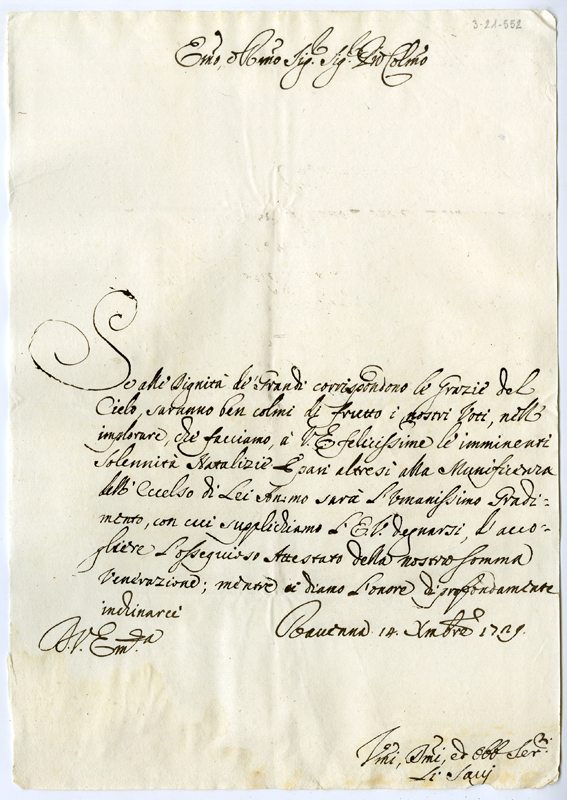 3-21-552
Emo, e Rmo Sig.r Sig.r Pron Colmo
Se alle Dignità de' Grandi corrispondono le Grazie del
Cielo, saranno ben colmi di frutto i nostri Voti, nell'
implorare, che facciamo, à V.E. felicissime le imminenti
Solennità Natalizie. E pari altresi alla Munificenza
dell'Eccelso di Lei Animo sarà l'Umanissimo Gradi-
mento, con cui supplichiamo l'E.V. degnarsi, d'acco-
gliere l'ossequioso Attestato della nostra somma
Venerazione; mentre ci diamo l'onore di profondamente
inchinarci
D.V. Em.da
Ravenna 14. Xmbre 1729.
Vmi, Dmi, ed Obb Ser.ri
Li Savj